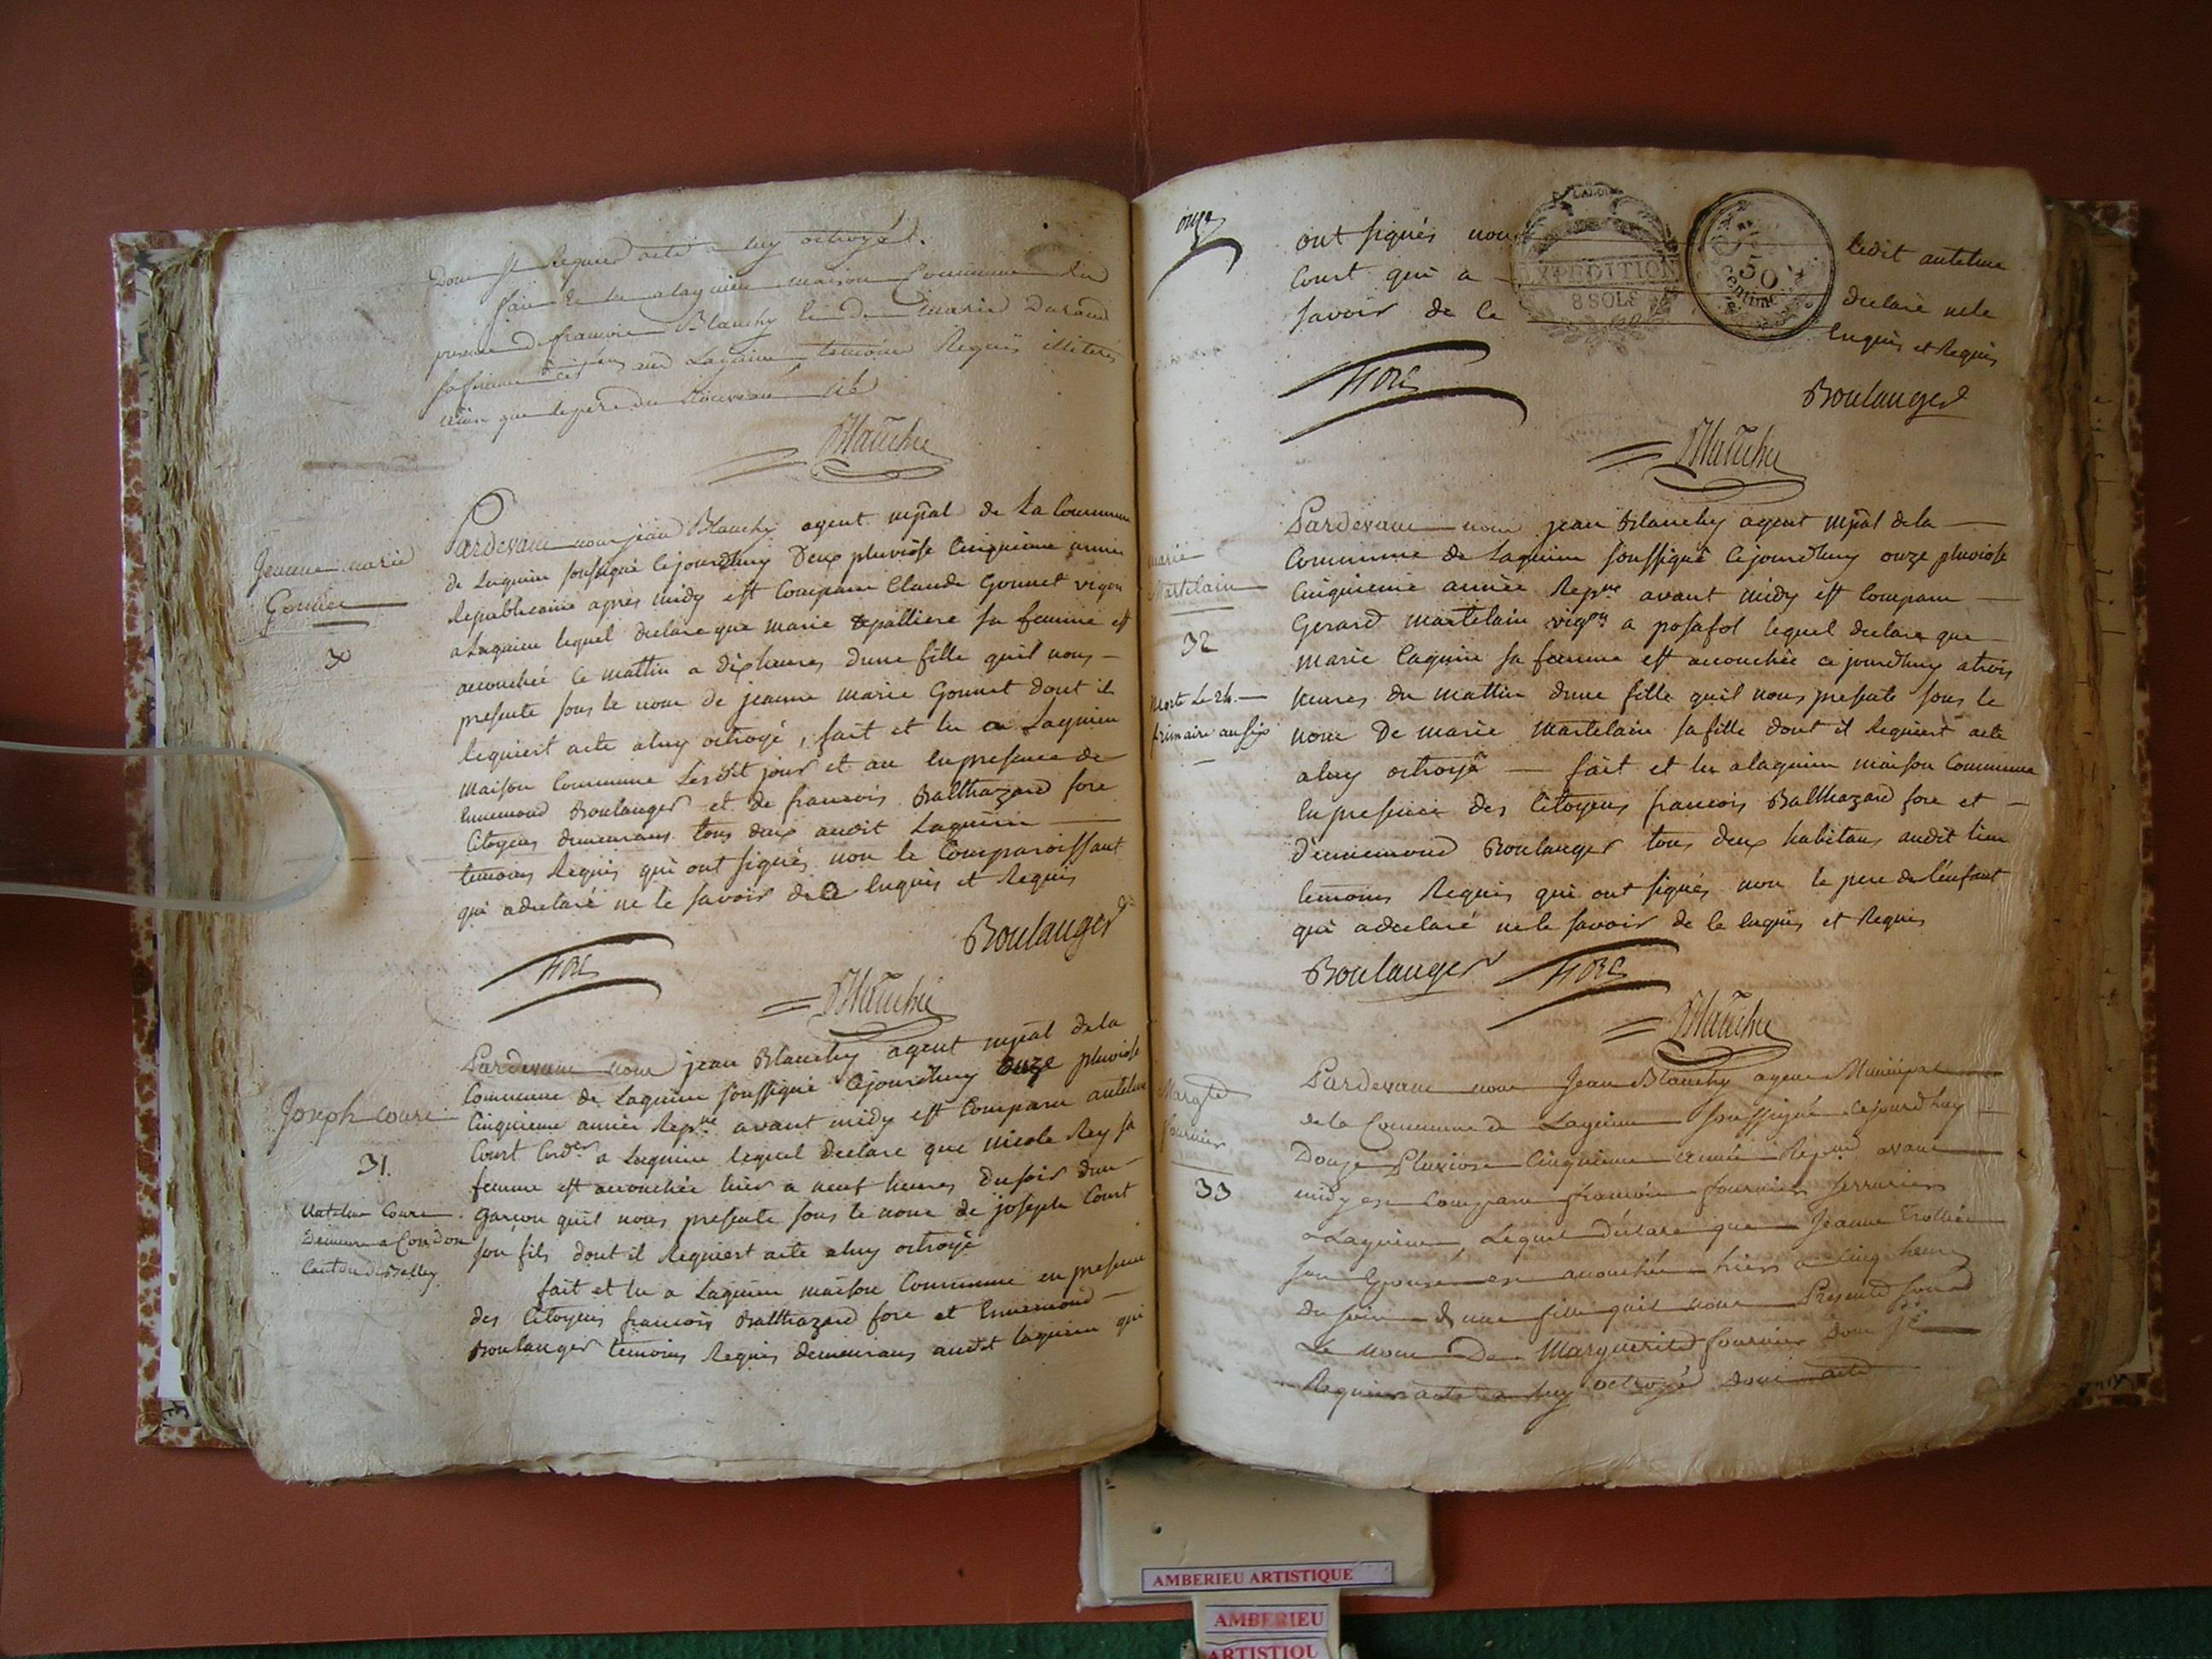 Dont Il Requier acte a luy octroyé.
fait & lu a laguieu maison Commune En
presence de francois Blanchy & De Marie Durand
sa femme cit.ens aud Laguieu temoins Requis illiteres
ainsi que le pere du Nouveau né
Blanchy
Jeanne marie
Gonnet
30
Pardevant nous jean Blanchy agent mpal de La Commune
de Laguieu soussigné cejourdhuy Deux pluviose Cinquieme année
Republicaine après midy est Comparu Claude Gonnet vigon
a Laguieu lequel declare que marie sa femme est
accouchée ce mattin a dix heures dune fille quil nous
presente sous le nom de jeanne marie Gonnet dont il
requiert acte aluy octroyé, fait et lu a Laguieu
maison Commune Lesdit jour et an En presence de
Ennemond Boulanger et de francois Balthazard fore
Citoyens demeurans tous deux audit Laguieu
temoins Requis qui ont signés non le Comparoissant
qui adeclaré ne le savoir de ce Enquis et Requis
fore
Boulanger
Blanchy
Joseph Court
31.
Antelme Court
Demeure a Condon
Canton de Belley
Pardevant nous jean Blanchy agent mpal dela
Commune de Laguieu soussigné cejourdhuy onze pluviose
Cinquieme année Repne avant midy est Comparu antelme
Court Cord.er a Laguieu lequel declare que nicole Rey sa
femme est accouchée hier a neuf heures du soir dun
Garcon quil nous presente sous le nom de joseph Court
son fils dont il Requiert acte aluy octroyé
fait et lu a Laguieu maison Commune en presence
des Citoyens francois Balthazard fore et Ennemond
Boulanger temoins Requis demeurans audit laguieu qui
onze
ont signés non ledit antelme
Court qui a declaré nele
savoir de ce Enquis et Requis
EXPEDITION
8 SOLS
50
Centimes
fore
Boulanger
Blanchy
marie
Martelain
32
Morte Le 24
frimaire an six
Pardevant nous jean Blanchy agent mpal dela
Commune de Laguieu soussigné Cejourdhuy onze pluviose
Cinquieme année Repne avant midy est Comparu
Gerard martelain vigon a posafol lequel declare que
marie laguieu sa femme est accouchée cejourdhuy atrois
heures du mattin dune fille quil nous presente sous le
nom De marie martelain sa fille dont il Requiert acte
aluy octroyé fait et lu alaguieu maison Commune
En presence des Citoyens francois Balthazard fore et
d'ennemond Boulanger tous deux habitans audit lieu
temoins Requis qui ont signés non le pere de lenfant
qui adeclaré nele savoir de ce Enquis et Requis
Boulanger fore
Blanchy
Margte
fournier
33
Pardevant nous Jean Blanchy agent Municipal
de la Commune de Laguieu soussigné cejourdhuy
Douze Pluviose Cinquieme année Repne avant
midy est Comparu francois fournier serrurier
a Laguieu Lequel déclare que Jeanne Trollier
son Epouse est accouchée hier a cinq heures
du soir d'une fille quil nous Présente sous
Le nom De Marguerite fournier dont il
Requiert acte a luy octroyé dont acte
AMBERIEU ARTISTIQUE
AMBERIEU
ARTISTIQU